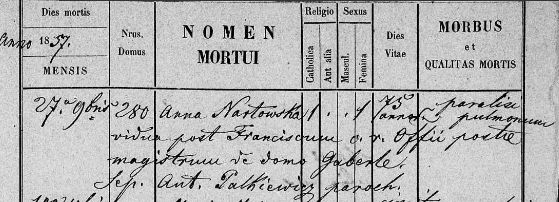 Dies mortis
Anno 1857.
MENSIS
Nrus. Domus
NOMEN
MORTUI
Religio
Catholica
Aut alia
Sexus
Mascul.
Femina
Dies Vitae
MORBUS
et
QUALITAS MORTIS
27. 9bris 280 Anna Nartowska 1 . . 1 75 annor. paralisi pulmonum
vidua post Franciscum c. r. Offii postae
magistrum de domo Gaberle.
Sep. Ant. Palkiewicz paroch.